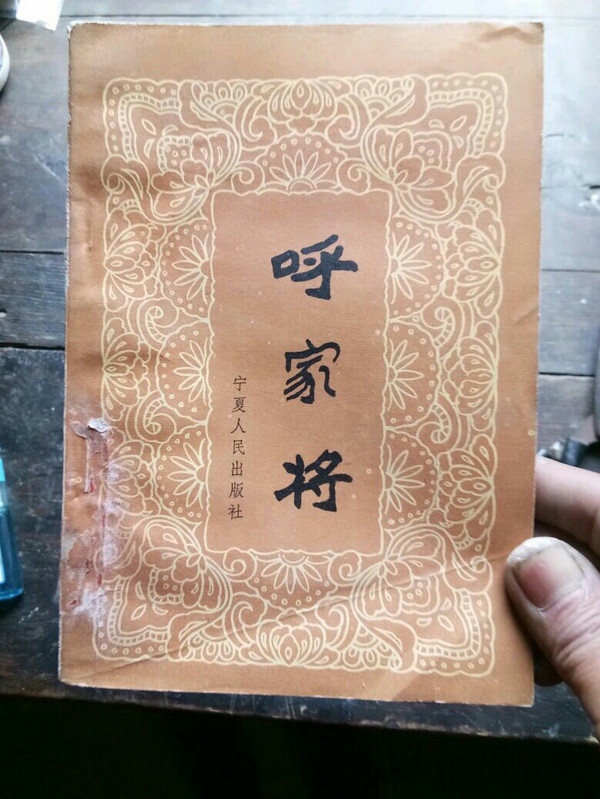 呼家将
宁夏人民出版社